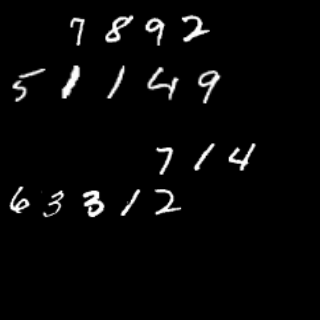 7892
51149
714
63312